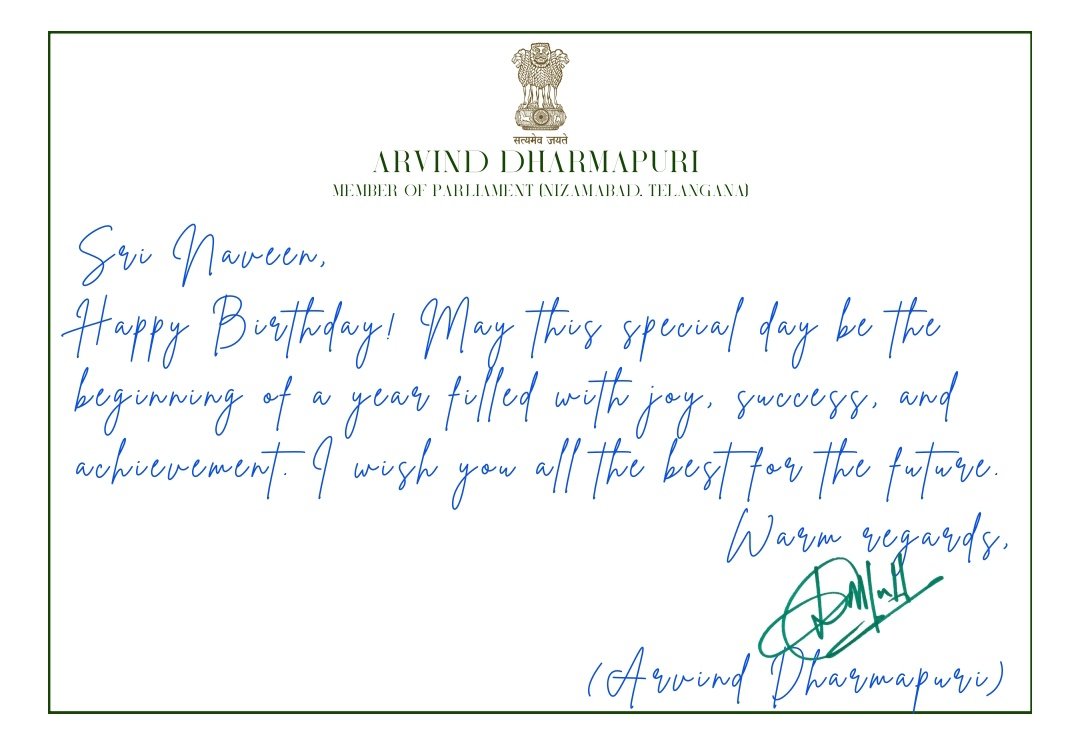 सत्यमेव जयते
ARVIND DHARMAPURI
MEMBER OF PARLIAMENT (NIZAMABAD, TELANGANA)
Sri Naveen,
Happy Birthday! May this special day be the
beginning of a year filled with joy, success, and
achievement. I wish you all the best for the future.
Warm regards,
(Arvind Dharmapuri)